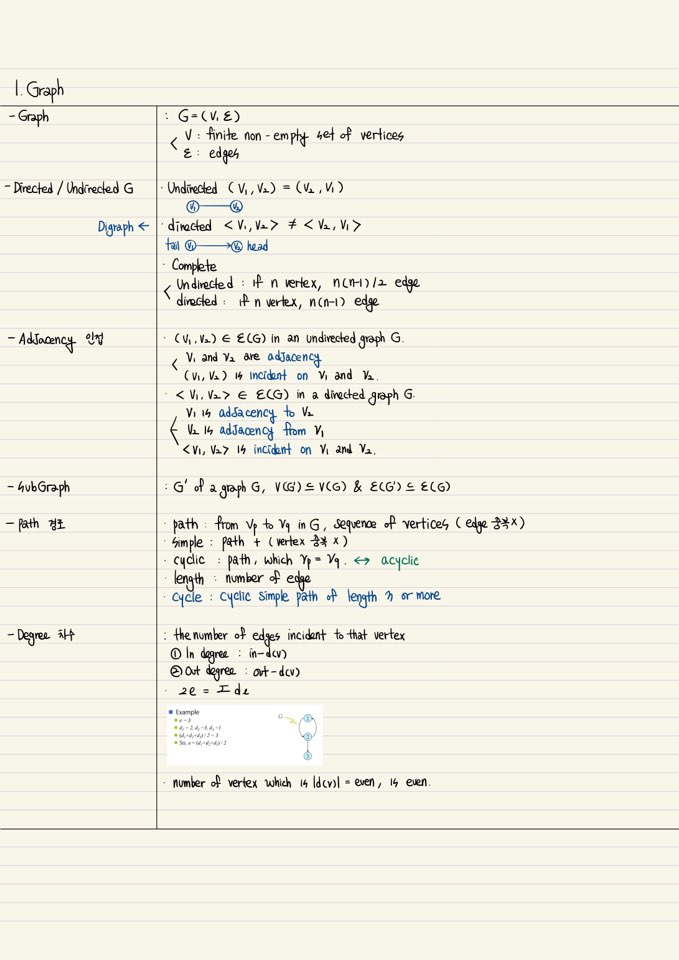 1. Graph
- Graph
: G = (V, E)
V : finite non-empty set of vertices
E : edges
- Directed / Undirected G
· Undirected (V₁, V₂) = (V₂, V₁)
V₁ V₂
Digraph ←
· directed < V₁, V₂ > ≠ < V₂, V₁ >
tail V₁ → V₂ head
· Complete
Undirected : if n vertex, n(n-1)/2 edge
directed : if n vertex, n(n-1) edge
- Adjacency 인접
· (V₁, V₂) ∈ E(G) in an undirected graph G.
V₁ and V₂ are adjacency
(V₁, V₂) is incident on V₁ and V₂.
· < V₁, V₂ > ∈ E(G) in a directed graph G.
V₁ is adjacency to V₂
V₂ is adjacency from V₁
<V₁, V₂> is incident on V₁ and V₂.
- SubGraph
: G' of a graph G, V(G') ⊆ V(G) & E(G') ⊆ E(G)
- Path 경로
· path : from Vp to Vq in G, sequence of vertices (edge 중복 x)
· simple : path + (vertex 중복 x)
· cyclic : path, which Vp = Vq. ↔ acyclic
· length : number of edge
· cycle : cyclic simple path of length 3 or more
- Degree 차수
: the number of edges incident to that vertex
① In degree : in-d(v)
② Out degree : out-d(v)
· 2e = Σ di
Example
e = 3
G
1
2
3
So, e = (d₁+d₂+d₃) / 2
· number of vertex which is |d(v)| = even, is even.